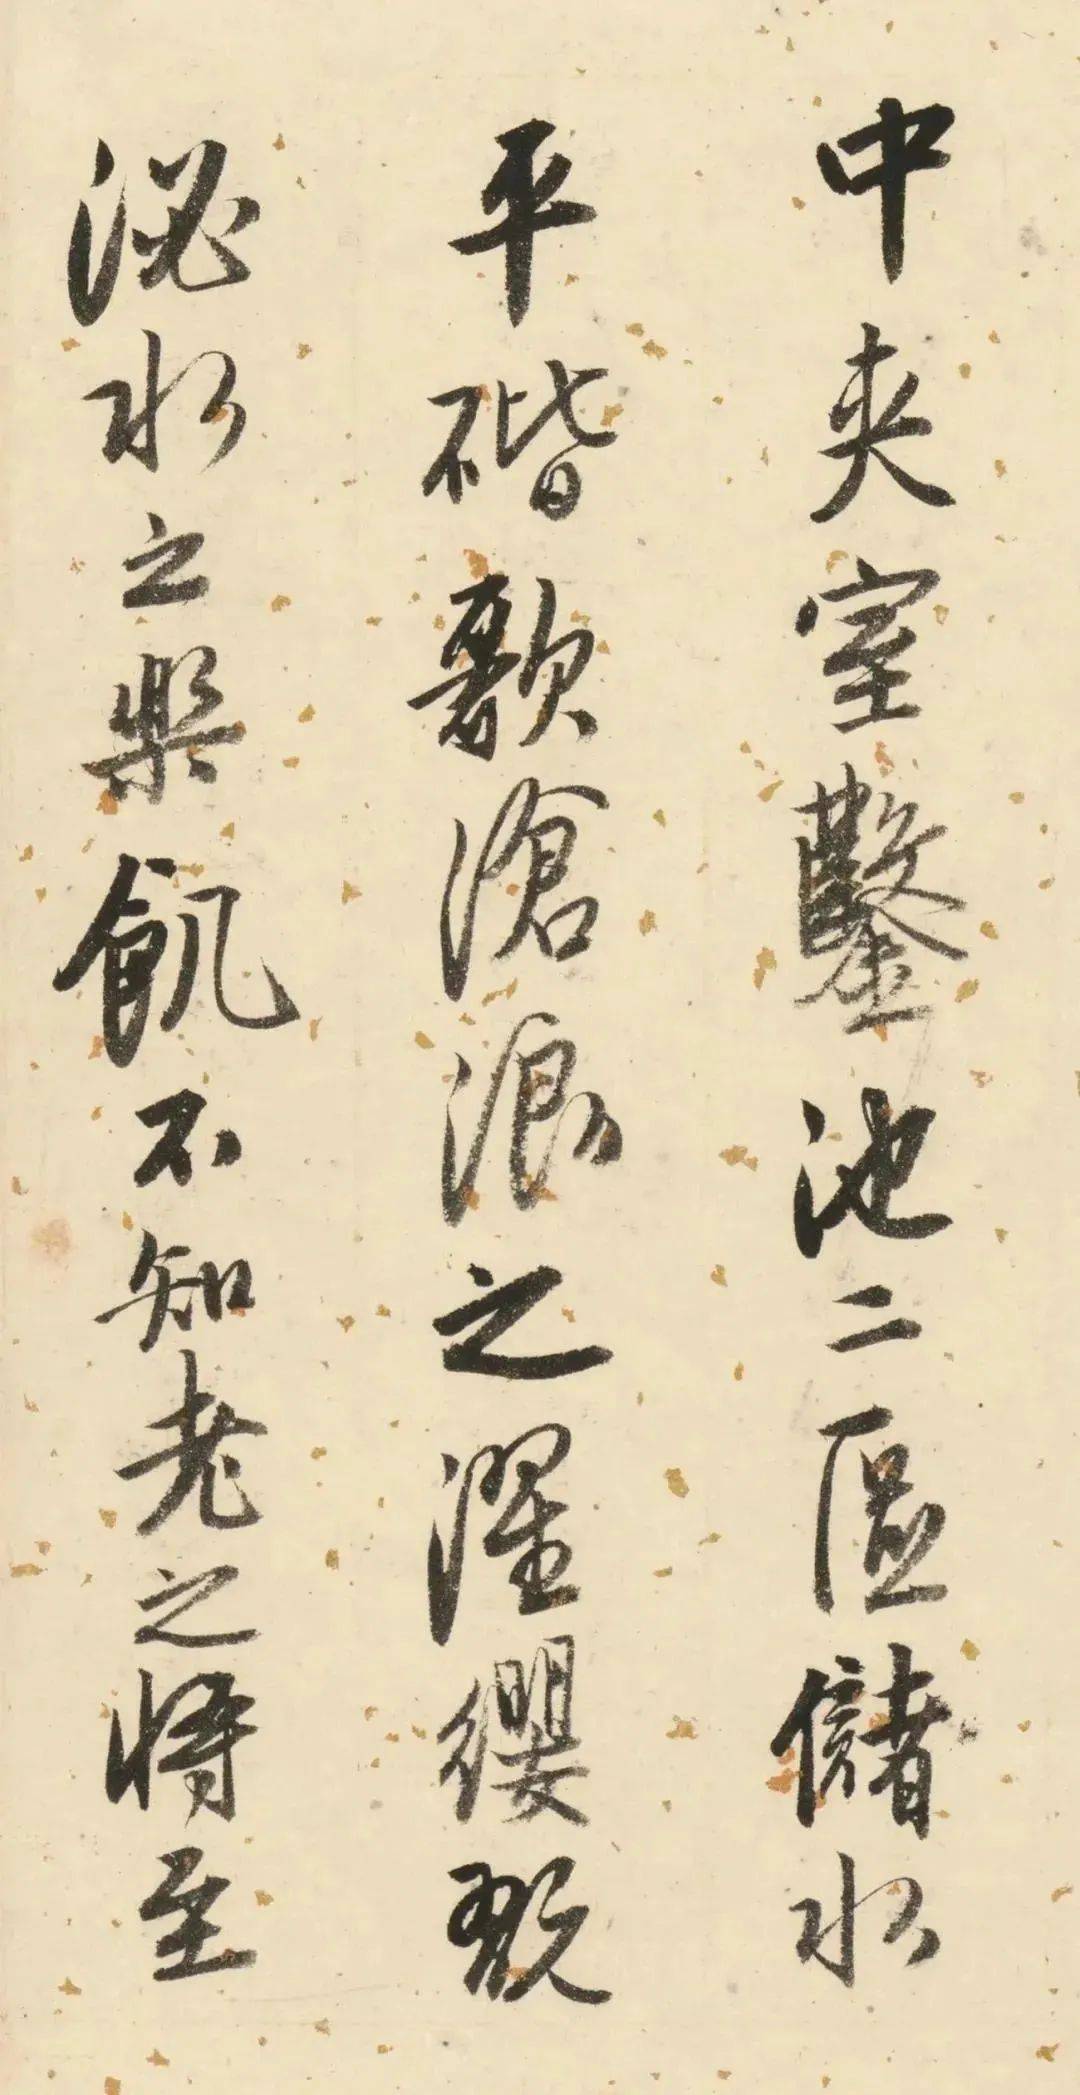 中夾室鑿池二區儲水
平碏歌滄浪之濯纓翫
泌水之樂飢不知老之將至